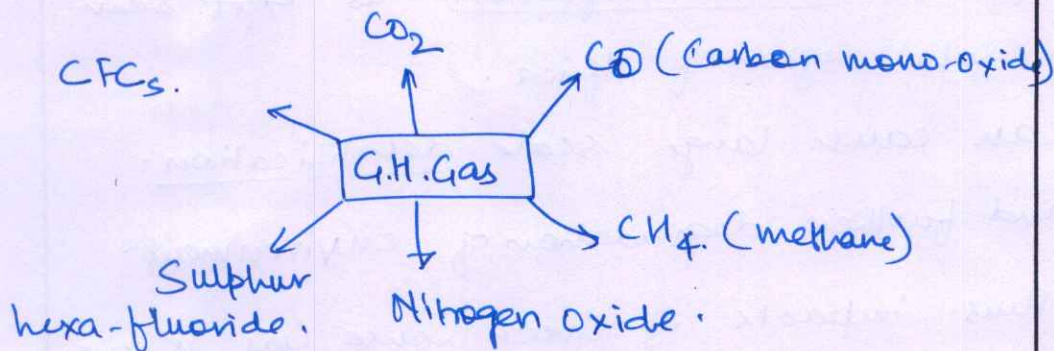 CO₂
CFCs.
CO (Carbon mono-oxide)
G.H.Gas
CH₄. (methane)
Sulphur
hexa-fluoride.
Nitrogen Oxide.